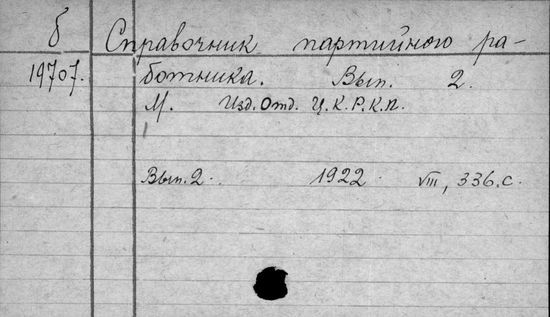 б Справочник партийного ра-
19707. ботника. Вып. 2.
М. Изд. Отд. Ц.К.Р.К.П.
Вып. 2. 1922. VIII, 336. с.